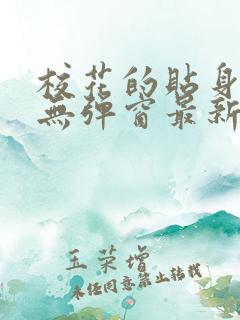 校花的貼身
無彈窗最新
玉荣增
未经同意禁止转载